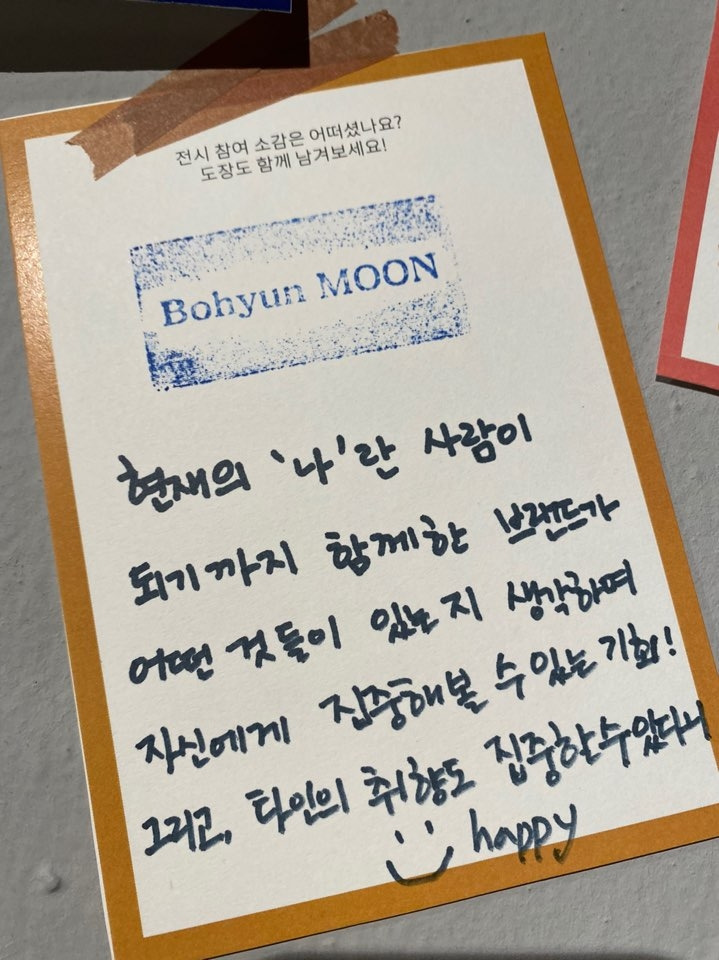 전시 참여 소감은 어떠셨나요?
도장도 함께 남겨보세요!
Bohyun MOON
현재의 '나'란 사람이
되기까지 함께한 브랜드가
어떤 것들이 있는지 생각하며
자신에게 집중해볼 수 있는 기회!
그리고, 타인의 취향도 집중할 수 있다니
happy